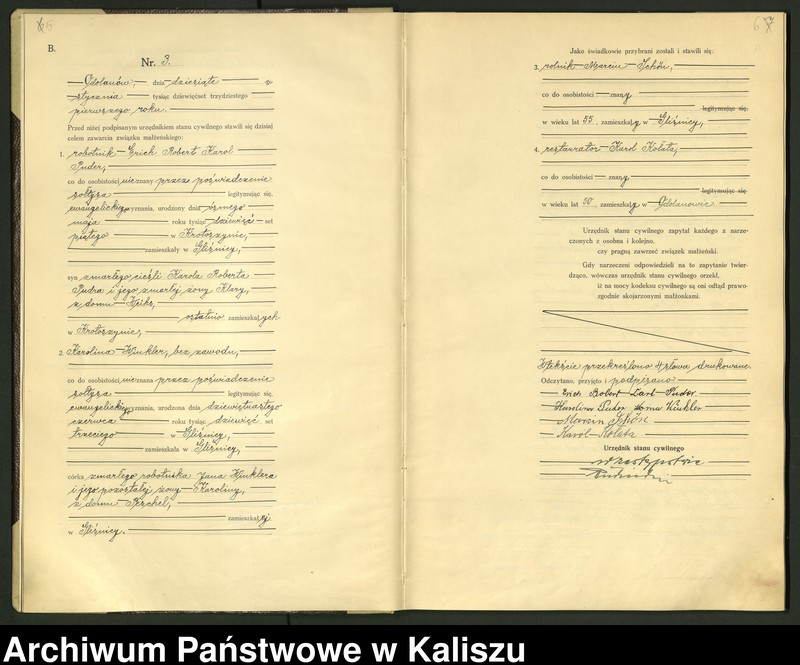 B.
Nr. 3.
Odolanów, dnia dziesiąte go
stycznia tysiąc dziewięćset trzydziestego
pierwszego roku.
Przed niżej podpisanym urzędnikiem stanu cywilnego stawili się dzisiaj
celem zawarcia związku małżeńskiego:
1. robotnik Erich Robert Karol
Puder,
co do osobistości nieznany przez poświadczenie
sołtysa legitymując się,
ewangelickiego wyznania, urodzony dnia ósmego
maja roku tysiąc dziewięć set
piątego w Krotoszynie,
zamieszkały w Gliśnicy,
syn zmarłego cieśli Karola Roberta
Pudra i jego zmarłej żony Klary,
z domu
ostatnio zamieszkałych
w Krotoszynie,
2. Karolina Winkler, bez zawodu,
co do osobistości nieznana przez poświadczenie
sołtysa legitymując się,
ewangelickiego wyznania, urodzona dnia dziewiętnastego
czerwca roku tysiąc dziewięć set
trzeciego w Gliśnicy,
zamieszkała w Gliśnicy,
córka zmarłego robotnika Jana Winklera
i jego pozostałej żony Karoliny,
z domu
zamieszkałej
w Gliśnicy.
67
Jako świadkowie przybrani zostali i stawili się:
3. rolnik Marcin Schön,
co do osobistości znany
legitymując się,
w wieku lat 55, zamieszkały w Gliśnicy,
4. restaurator Karol Kolata,
co do osobistości znany
legitymując się
w wieku lat 50, zamieszkały w Odolanowie
Urzędnik stanu cywilnego zapytał każdego z narze-
czonych z osobna i kolejno,
czy pragną zawrzeć związek małżeński.
Gdy narzeczeni odpowiedzieli na to zapytanie twier-
dząco, wówczas urzędnik stanu cywilnego orzekł,
iż na mocy kodeksu cywilnego są oni odtąd prawo-
zgodnie skojarzonymi małżonkami.
W tekście przekreślono 4 słowa drukowane.
Odczytano, przyjęto i podpisano
Erich Robert Carl Puder.
Karolina Puder Winkler
Marcin Schön
Karol Kolata
Urzędnik stanu cywilnego
w zastępstwie
Archiwum Państwowe w Kaliszu